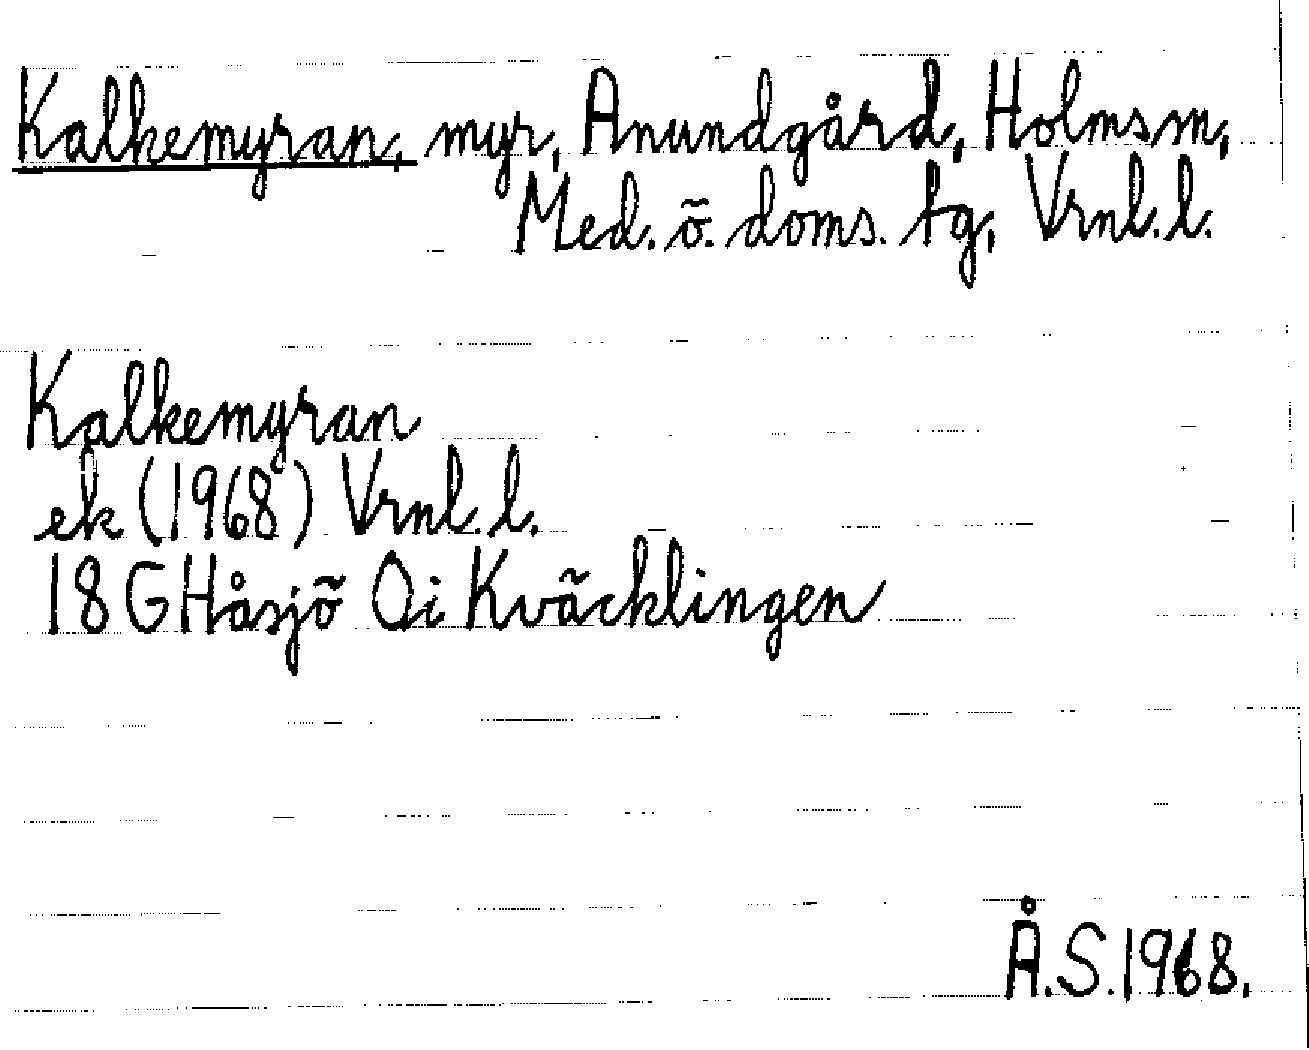 Kalkemyran, myr, Anundgård, Holmsm,
Med. ö. doms. tg, Vrnl. l.
Kalkemyran
ek (1968) Vrnl. l.
18 G Håsjö Oi Kväcklingen
Å.S. 1968.